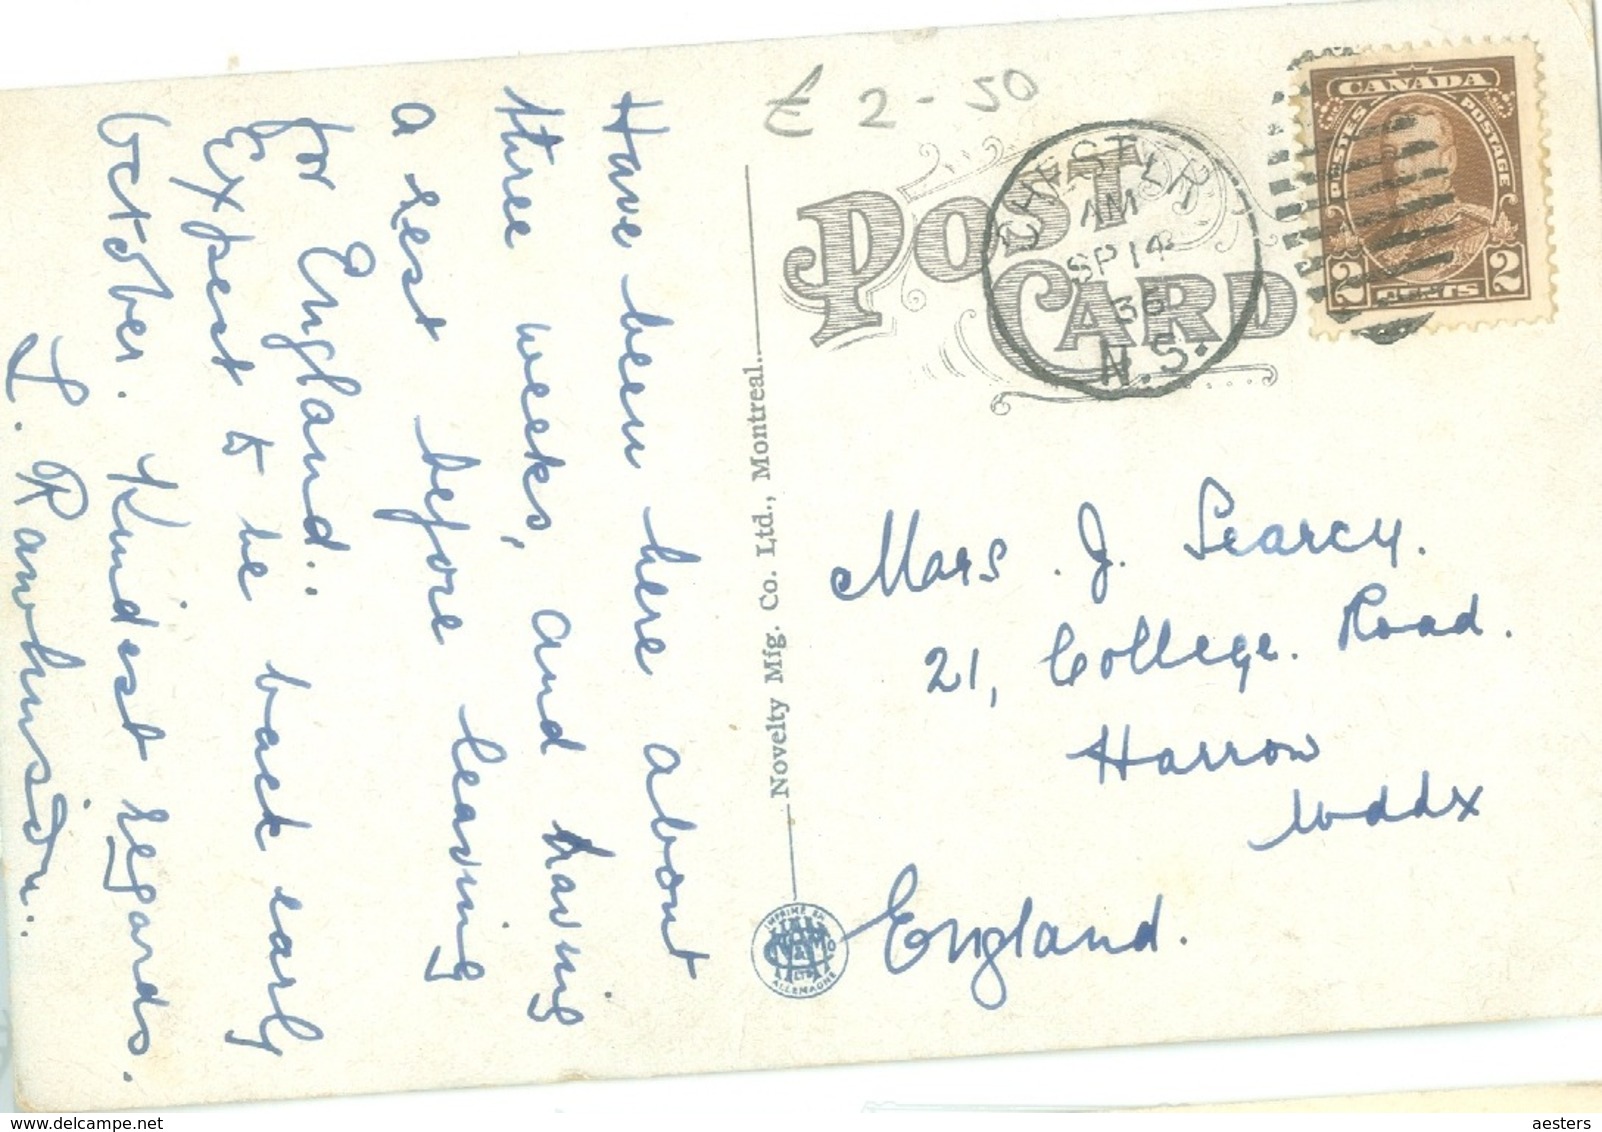 Have been here about
three weeks, and having
a rest before leaving
for England..
Expect to be back early
October. Kindest regards.
L. Rawhinson..
£ 2-50
POST CARD
CHESTER
AM
SP 14
35
N.S.
CANADA
POSTES POSTAGE
2 CENTS 2
Novelty Mfg. Co. Ltd., Montreal.
J. Searcy.
21, College. Road.
Harrow
Middx
England.
IMPRIMÉ EN
LTD
ALLEMAGNE
aesters